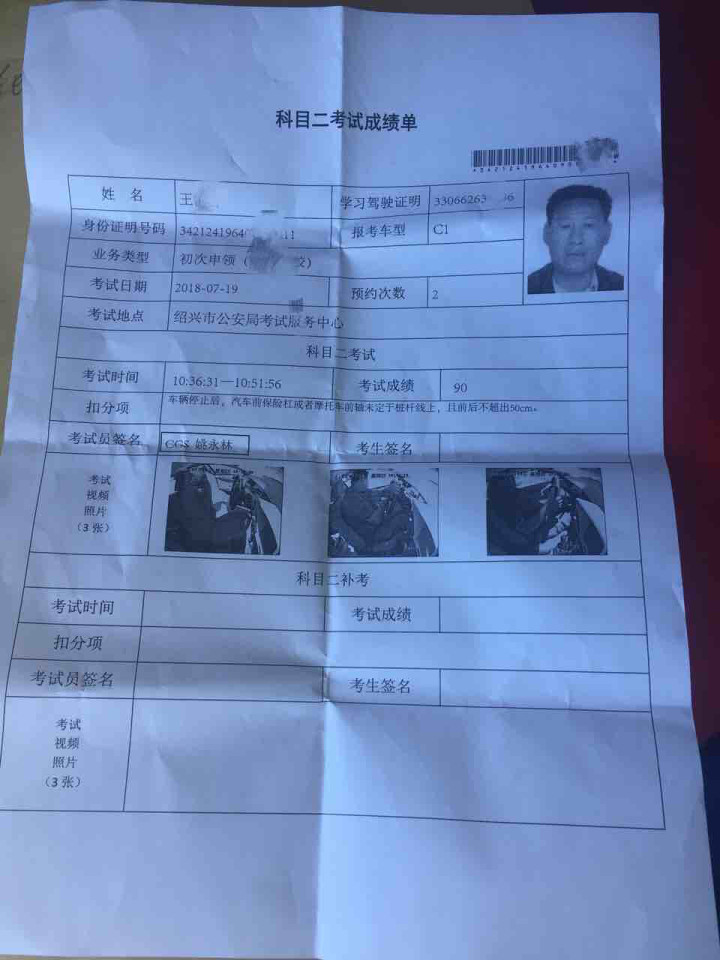 科目二考试成绩单
姓 名 王 学习驾驶证明 33066263 6
身份证明号码 3421241964 11 报考车型 C1
业务类型 初次申领（ 校）
考试日期 2018-07-19 预约次数 2
考试地点 绍兴市公安局考试服务中心
科目二考试
考试时间 10:36:31—10:51:56 考试成绩 90
扣分项 车辆停止后，汽车前保险杠或者摩托车前轴未定于桩杆线上，且前后不超出50cm。
考试员签名 CGS 姚永林 考生签名
考试
视频
照片
（3 张）
科目二补考
考试时间 考试成绩
扣分项
考试员签名 考生签名
考试
视频
照片
（3 张）